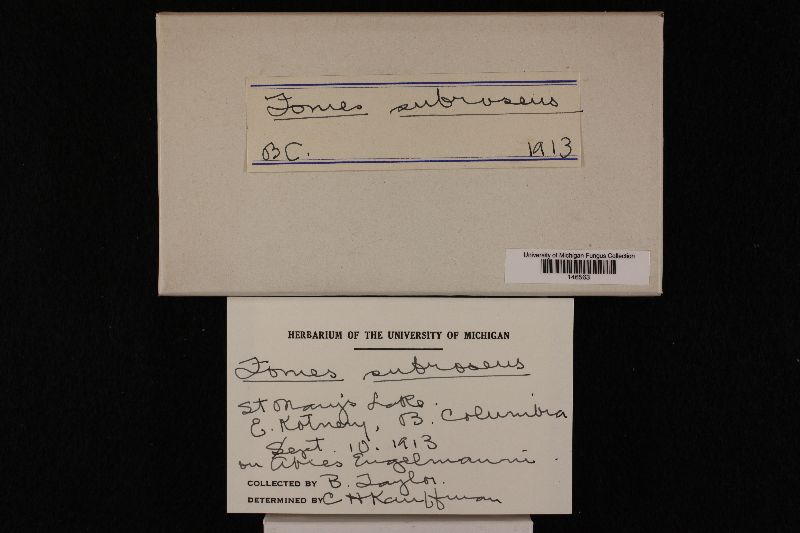 Fomes subroseus
BC. 1913
University of Michigan Fungus Collection
146563
HERBARIUM OF THE UNIVERSITY OF MICHIGAN
Fomes subroseus
St Mary's Lake.
E. Kotnay, B. Columbia
Sept. 10. 1913
on Abies Engelmanni.
COLLECTED BY B. Taylor.
DETERMINED BY C H Kauffman